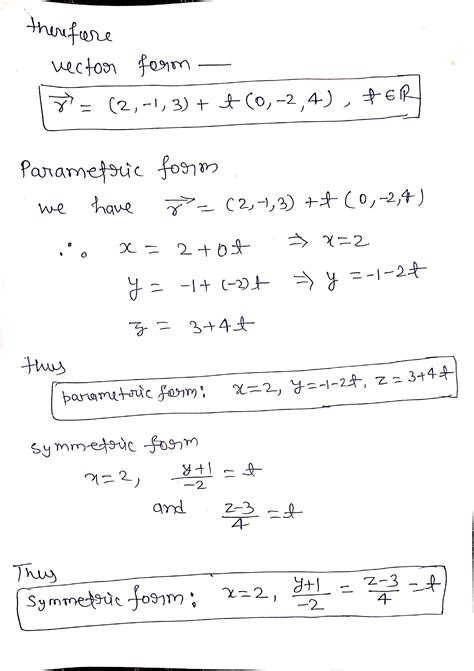 therefore
vector form —
r⃗ = (2,-1,3) + t(0,-2,4), t∈ℝ
Parametric form
we have r⃗ = (2,-1,3) + t(0,-2,4)
∴ x = 2+0t ⇒ x=2
y = -1+(-2)t ⇒ y = -1-2t
z = 3+4t
thus
parametric form: x=2, y=-1-2t, z=3+4t
symmetric form
x=2, y+1/-2 = t
and z-3/4 = t
Thus
symmetric form: x=2, y+1/-2 = z-3/4 = t